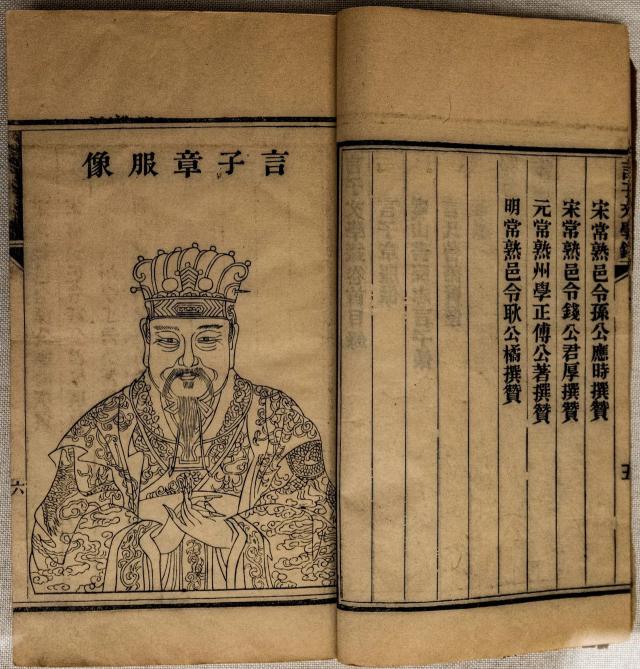 言子文學錄
五
宋常熟邑令孫公應時撰贊
宋常熟邑令錢公君厚撰贊
元常熟州學正傅公著撰贊
明常熟邑令耿公橘撰贊
言子章服像
六